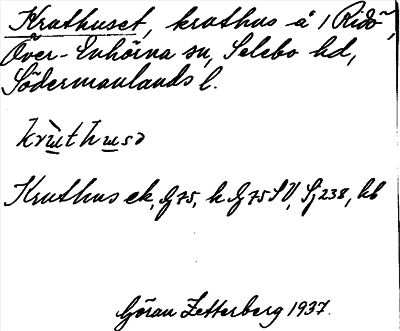 Kruthuset, kruthus å 1 Ridö,
Över-Enhörna sn, Selebo hd,
Södermanlands l.
krùthusə
Kruthus ek, G 75, k G 75 SV, Sj 238, kb
Göran Zetterberg 1937.